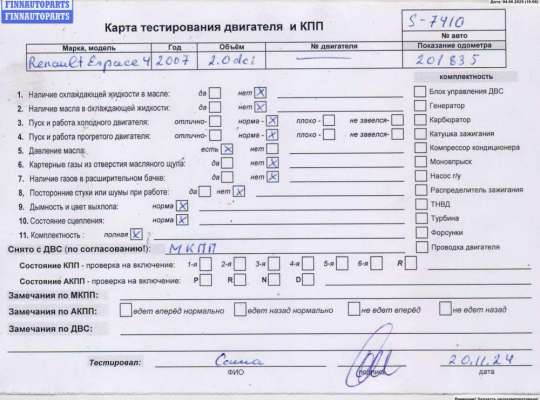 FINNAUTOPARTS
FINNAUTOPARTS
Карта тестирования двигателя и КПП
S-7410
№ авто
Марка, модель Год Объём № двигателя Показание одометра
Renault Espace 4 2007 2.0 dci 201835
комплектность
1. Наличие охлаждающей жидкости в масле: да нет X
2. Наличие масла в охлаждающей жидкости: да нет X
3. Пуск и работа холодного двигателя: отлично- норма - X плохо - не завелся-
4. Пуск и работа прогретого двигателя: отлично- норма - X плохо - не завелся-
5. Давление масла: есть X нет
6. Картерные газы из отверстия масляного щупа: да нет X
7. Наличие газов в расширительном бачке: да нет X
8. Посторонние стуки или шумы при работе: да нет X
9. Дымность и цвет выхлопа: норма X
10. Состояние сцепления: норма X
11. Комплектность : полная X
Блок управления ДВС
Генератор
Карбюратор
Катушка зажигания
Компрессор кондиционера
Моновпрыск
Насос г/у
Распределитель зажигания
ТНВД
Турбина
Форсунки
Проводка двигателя
Снято с ДВС (по согласованию!): МКПП
Состояние КПП - проверка на включение: 1-я 2-я 3-я 4-я 5-я 6-я R
Состояние АКПП - проверка на включение: P R N D
Замечания по МКПП:
Замечания по АКПП: едет вперёд нормально едет назад нормально не едет вперёд не едет назад
Замечания по ДВС:
Тестировал: 20.11.24
ФИО подпись дата